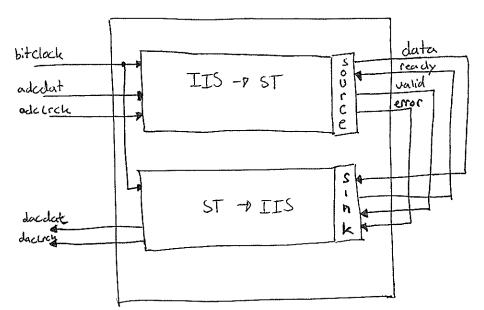 bitclock
adcdat
adclrck
IIS → ST
source
data
ready
valid
error
ST → IIS
sink
dacdat
daclrck